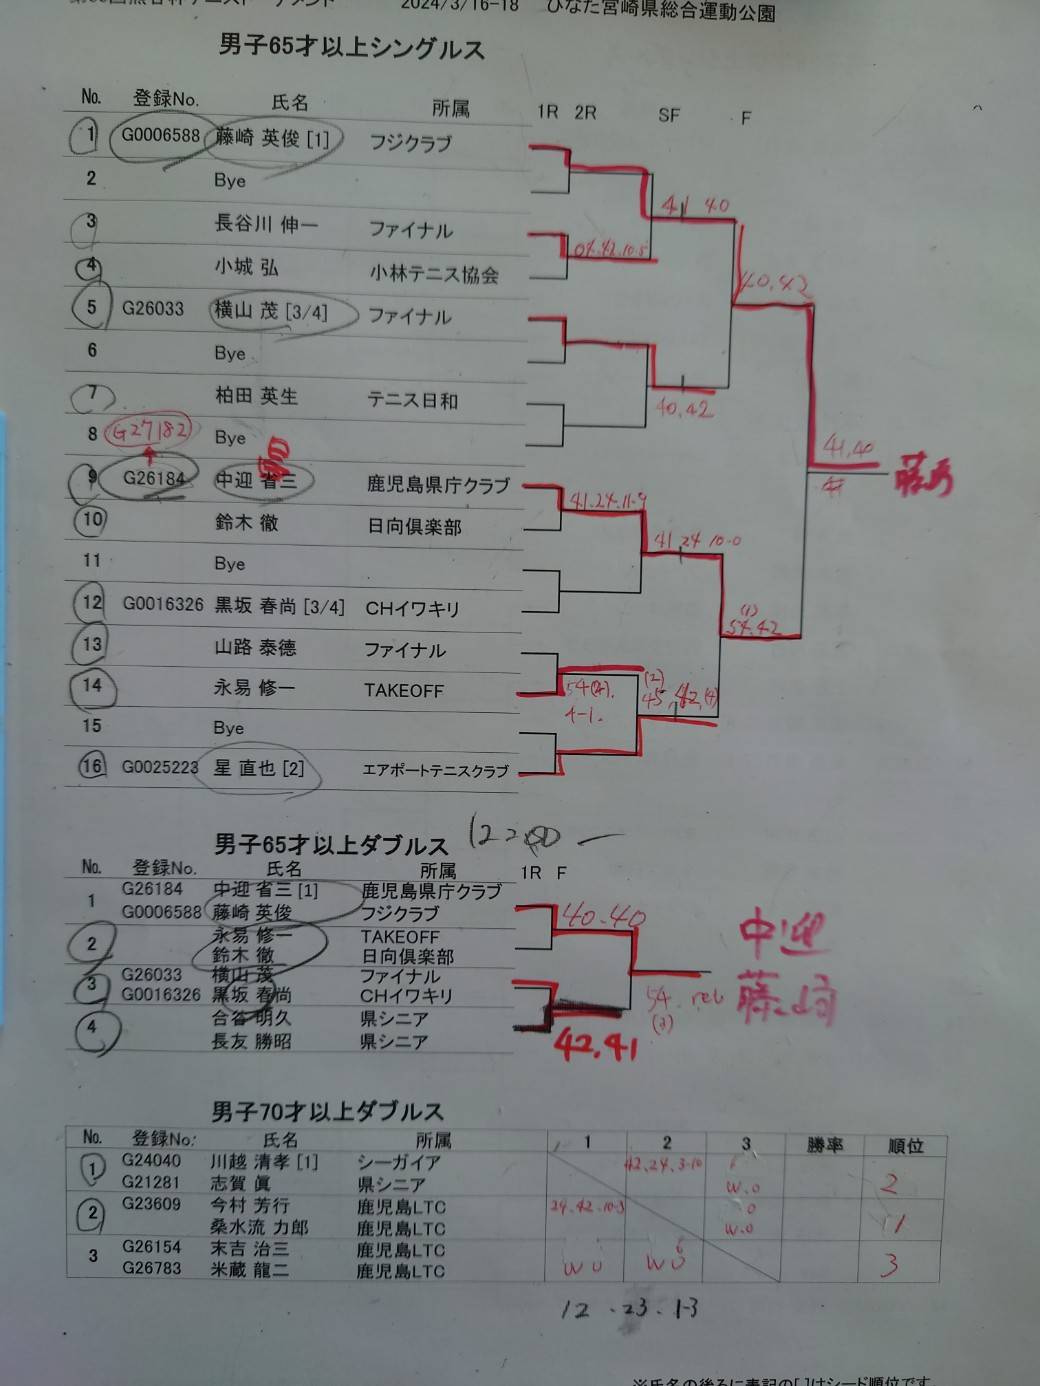 2024/3/16-18 ひなた宮崎県総合運動公園
男子65才以上シングルス
No. 登録No. 氏名 所属 1R 2R SF F
1 G0006588 藤崎 英俊 [1] フジクラブ
2 Bye
41 40
3 長谷川 伸一 ファイナル
04.42.10-5
4 小城 弘 小林テニス協会
40.42
5 G26033 横山 茂 [3/4] ファイナル
6 Bye
7 柏田 英生 テニス日和
40.42
8 G27182 Bye
41,40
9 G26184 中迎 省三 鹿児島県庁クラブ
藤崎
41.24.11-9
10 鈴木 徹 日向倶楽部
41 24 10-0
11 Bye
12 G0016326 黒坂 春尚 [3/4] CHイワキリ
(1)
54.42
13 山路 泰徳 ファイナル
14 永易 修一 TAKEOFF
54(2).
4-1.
(2)
45,42,(4)
15 Bye
16 G0025223 星 直也 [2] エアポートテニスクラブ
男子65才以上ダブルス
No. 登録No. 氏名 所属 1R F
1 G26184 中迎 省三 [1] 鹿児島県庁クラブ
G0006588 藤崎 英俊 フジクラブ
40-40
中迎
2 永易 修一 TAKEOFF
鈴木 徹 日向倶楽部
3 G26033 横山 茂 ファイナル
G0016326 黒坂 春尚 CHイワキリ
54. ret
(3)
藤崎
4 合谷 明久 県シニア
長友 勝昭 県シニア
42,41
男子70才以上ダブルス
No. 登録No. 氏名 所属 1 2 3 勝率 順位
1 G24040 川越 清孝 [1] シーガイア 42,24,3-10
G21281 志賀 眞 県シニア W.O 2
2 G23609 今村 芳行 鹿児島LTC 24.42.10-3
桑水流 力郎 鹿児島LTC W.O 1
3 G26154 末吉 治三 鹿児島LTC
G26783 米蔵 龍二 鹿児島LTC W O W O 3
12 .23. 1-3
※氏名の後ろに表記の[ ]はシード順位です